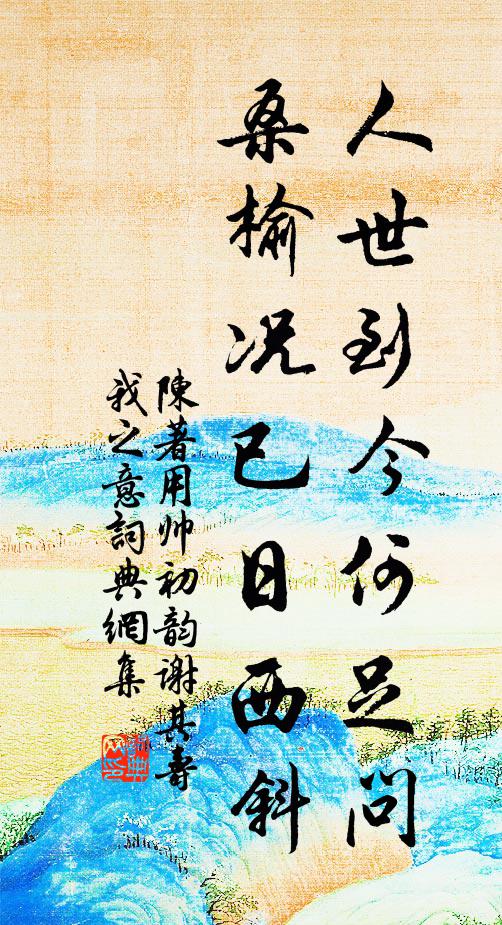 人世到今何足问
桑榆况已日西斜
陳著用帅初韵谢其壽
我之意詞典網集